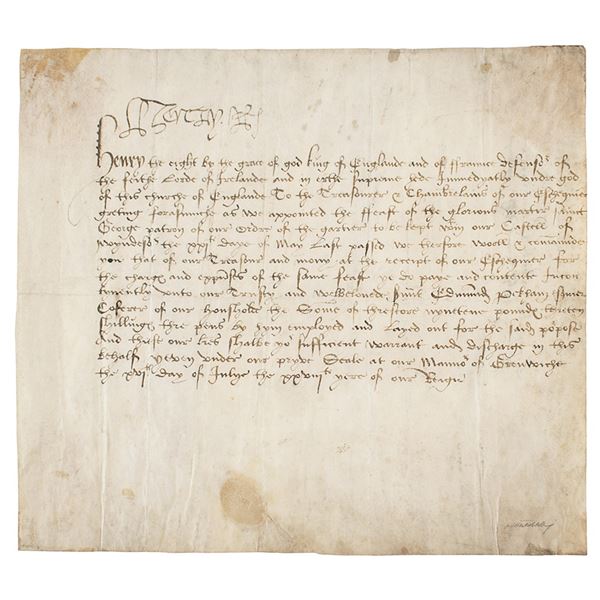 Henry R
Henry the eight by the grace of god king of Englande and of ffraunce defensor of
the feithe Lorde of Irelande and in erthe supreme hede Immedyatly undre god
of this churche of Englande To the Treasourer & Chambrelains of our Eschequier
greting forasmuche as we appointed the ffeast of the glorious martir saint
George patron of our Ordre of the gartier to be kept within our Castell of
Wyndesor the xxi daye of May Last passed we therfore woll & commaunde
you that of our Treasure and mony at the receipt of our Eschequier for
the charges and expences of the same feast ye do paye and contente Incon
tynently unto our Trusty and welbeloved Edmund Pekham
Coferer of our housholde the Some of threscore nyntene poundes
shillinges thre pens by hym employed and Layed out for the said purpose
And thiese our lres shalbe yor sufficient warrant and discharge in this
behalf yeven undre our pryve Seale at our Manor of Grenewiche
the xvi day of Julye the xxviii yere of our Reign